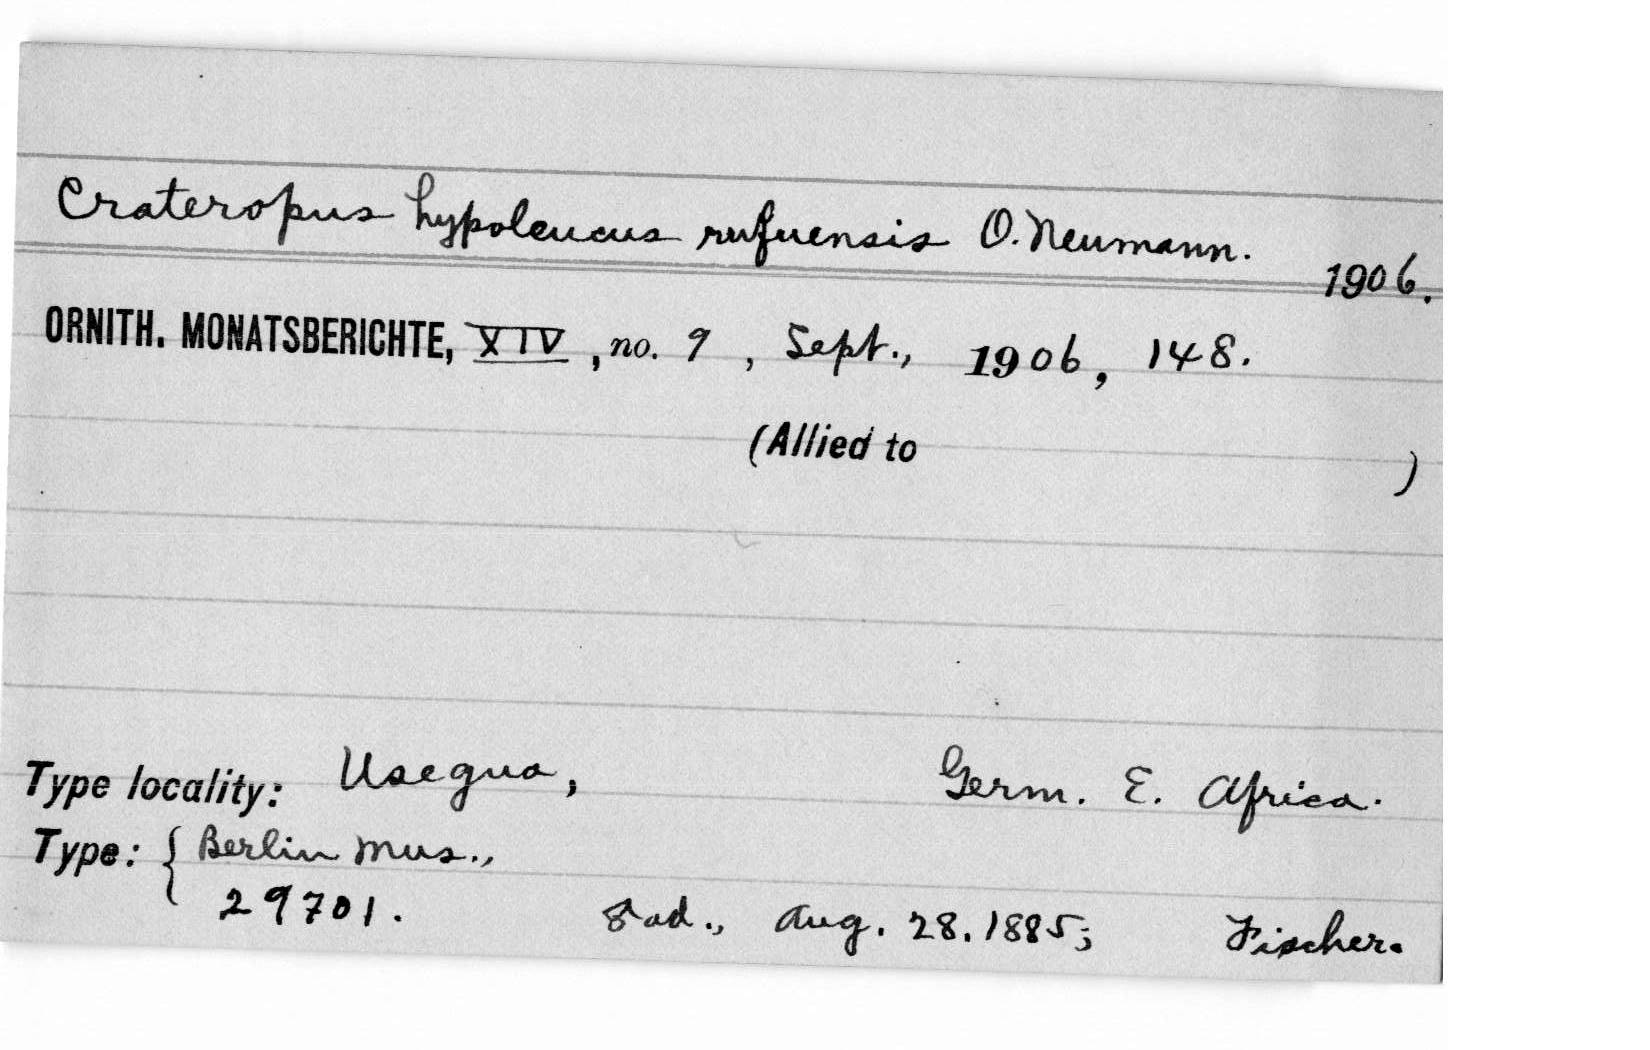 Crateropus hypoleucus rufuensis O. Neumann.
1906.
ORNITH. MONATSBERICHTE, XIV, no. 9, Sept., 1906, 148.
(Allied to )
Type locality: Usegua, Germ. E. Africa.
Type: { Berlin Mus.,
29701. ♂ ad., Aug. 28. 1885; Fischer.